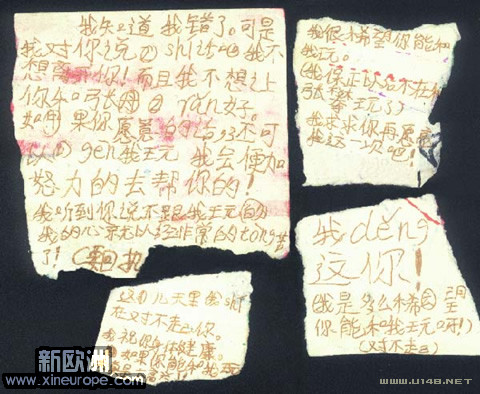 我知道我错了。可是
我对你说的shi话吧我不
想离开你!而且我不想让
你和张丹丹 rán好。
如果你愿意的话还可
以 gen我玩 我会便加
努力的去帮你的!
我听到你说不跟我玩
我的心就已经非常的tòng苦
了!(要回执
这几天里
在对不走己你。
祝你身体健康。
如果你能和我玩
我很希望你能和
我玩。
(我保正以说不在和
张
玩了)
我求求你再愿意
我这一次吧!
我děng
这你!
(我是多么希望
你能和我玩呀!)
(对不走己)
新欧洲
www.xineurope.com
WWW.U148.NET